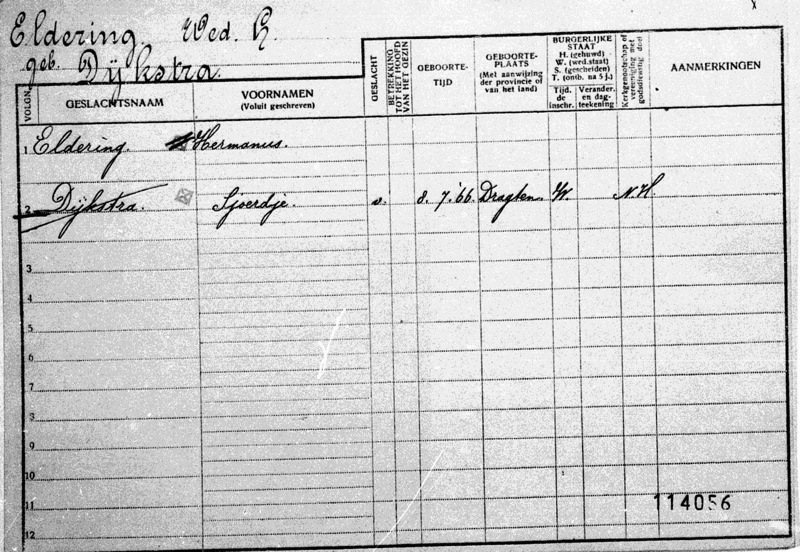 Eldering. Wed. H.
geb. Dijkstra.
VOLGN.
GESLACHTSNAAM
VOORNAMEN
(Voluit geschreven)
GESLACHT
BETREKKING TOT HET HOOFD VAN HET GEZIN
GEBOORTE-
TIJD
GEBOORTE-
PLAATS
(Met aanwijzing
der provincie of
van het land)
BURGERLIJKE
STAAT
H. (gehuwd)
W. (wed.staat)
S. (gescheiden)
T. (ontb. na 5 j.)
Tijd. de inschr.
Verander. en dag-teekening
Kerkgenootschap of vereeniging met godsdienstig doel
AANMERKINGEN
1 Eldering. Hermanus.
2 Dijkstra. Sjoerdje. v. 8. 7. '66 Dragten. W. N.H.
3
4
5
6
7
8
9
10
11 114056
12